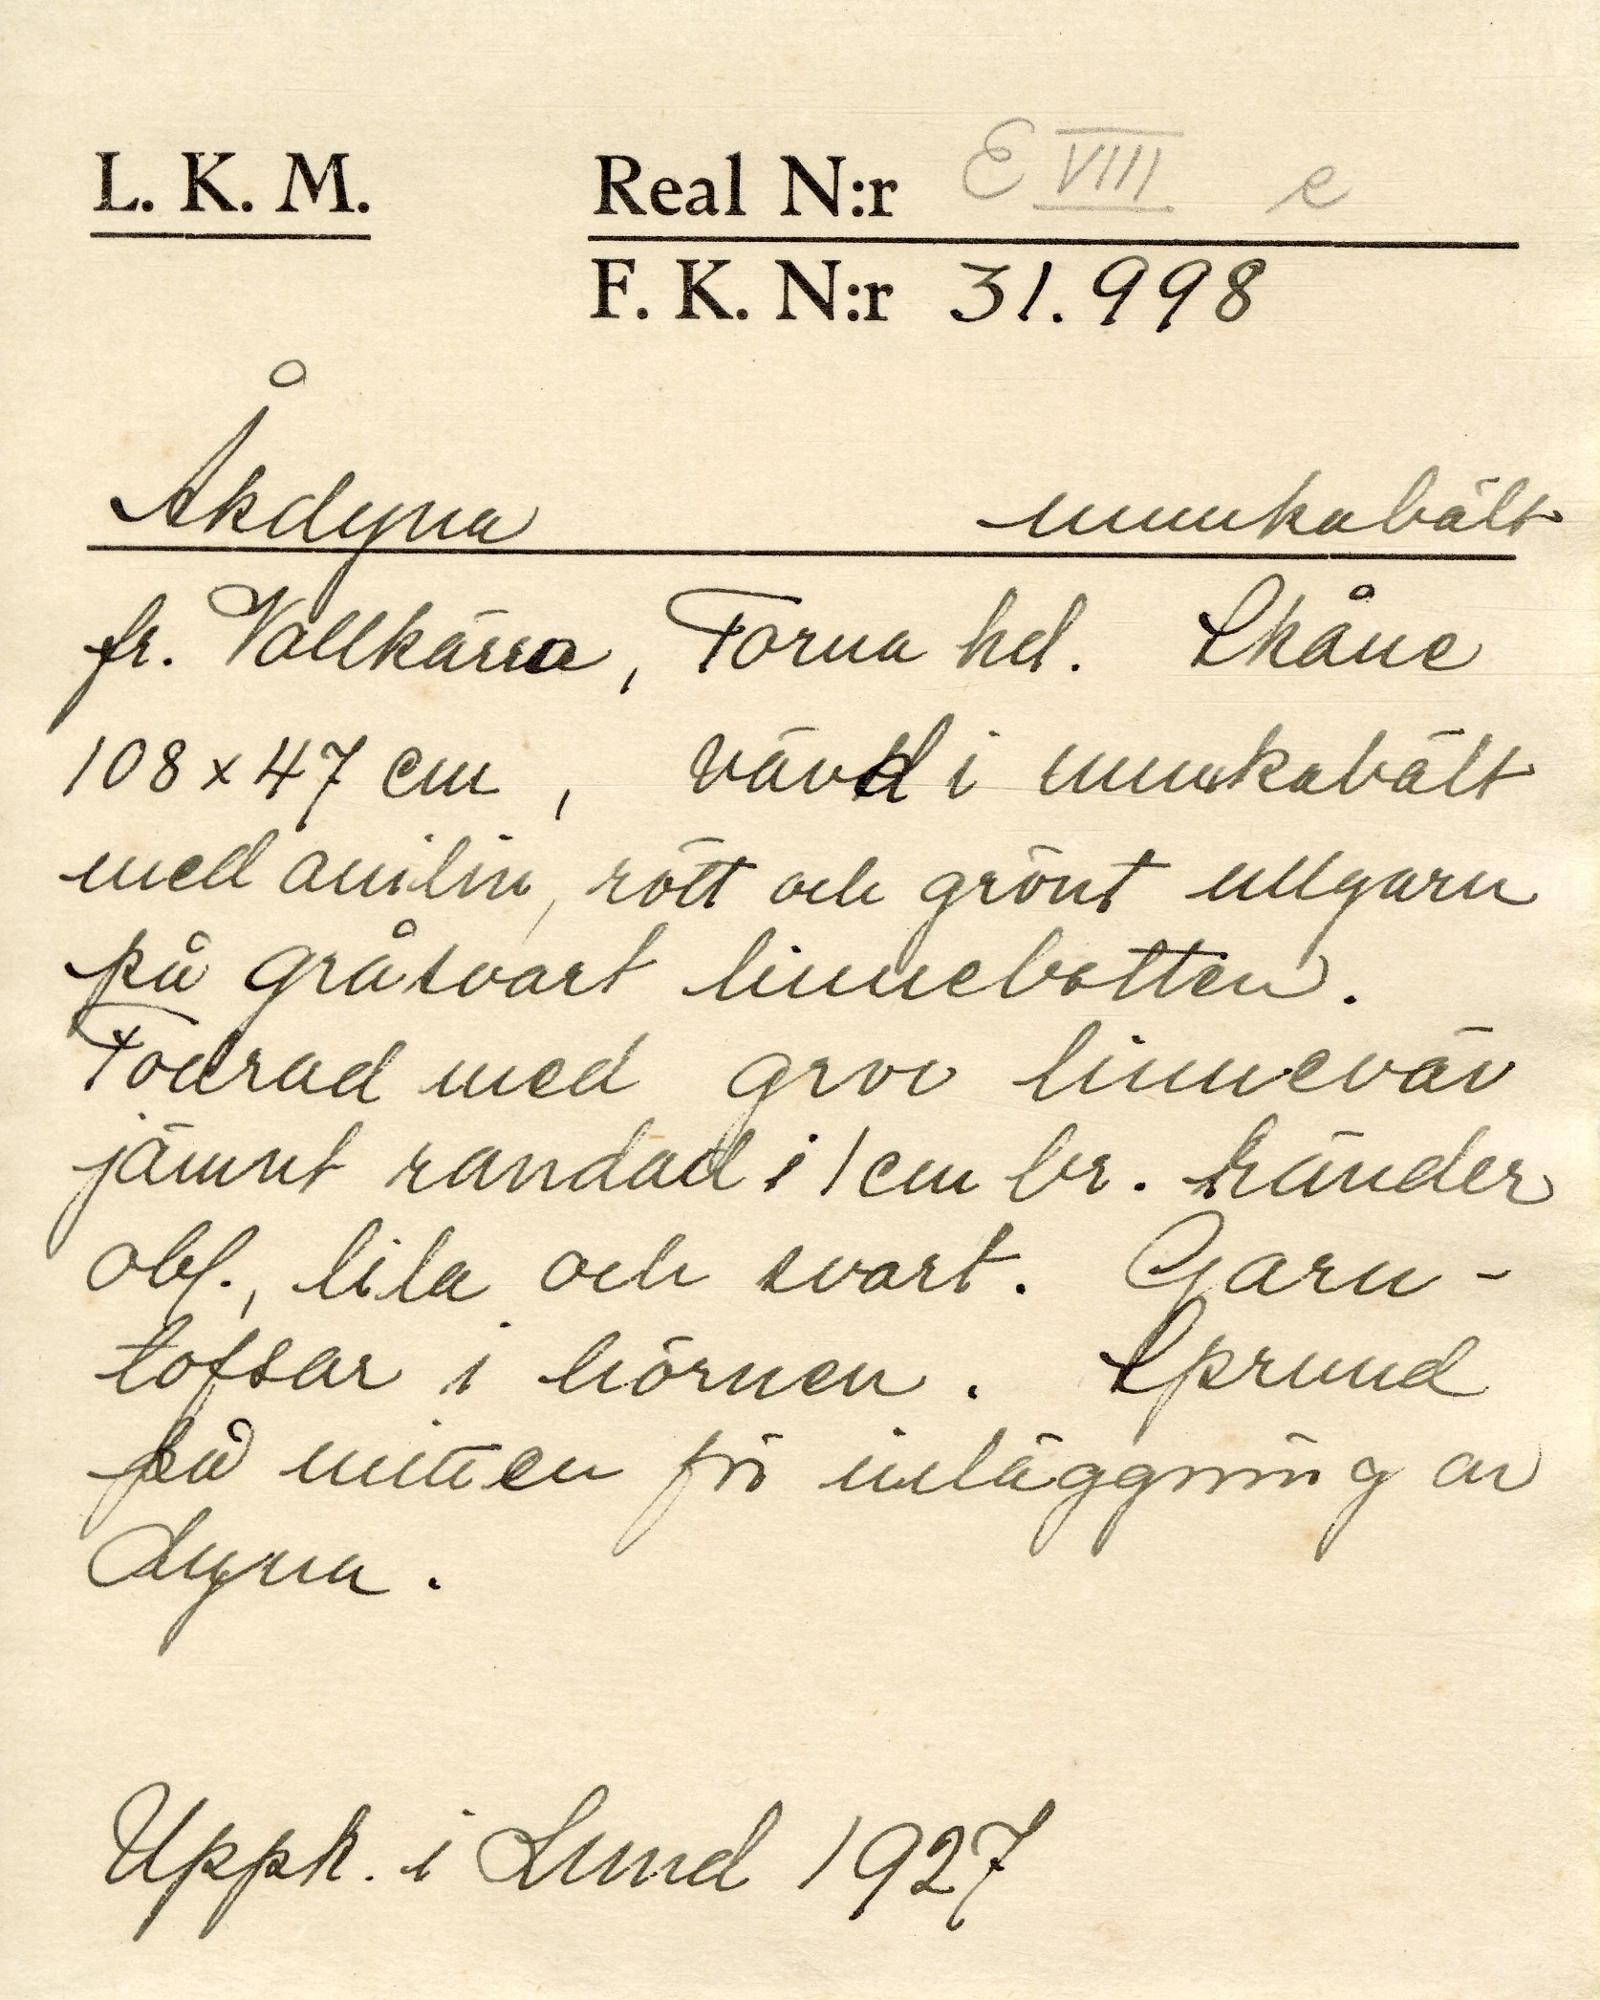 L. K. M.
Real N:r E VIII e
F. K. N:r 31.998
Åkdyna munkabält
fr. Vallkärra, Torna hd. Skåne
108 x 47 cm, vävd i munkabält
med anilin, rött och grönt ullgarn
på gråsvart linnebotten.
Fodrad med grov linneväv
jämnt randad i 1 cm br. ränder
obl., lila och svart. Garn-
tofsar i hörnen. Sprund
på mitten för inläggning av
dyna.
Uppk. i Lund 1927